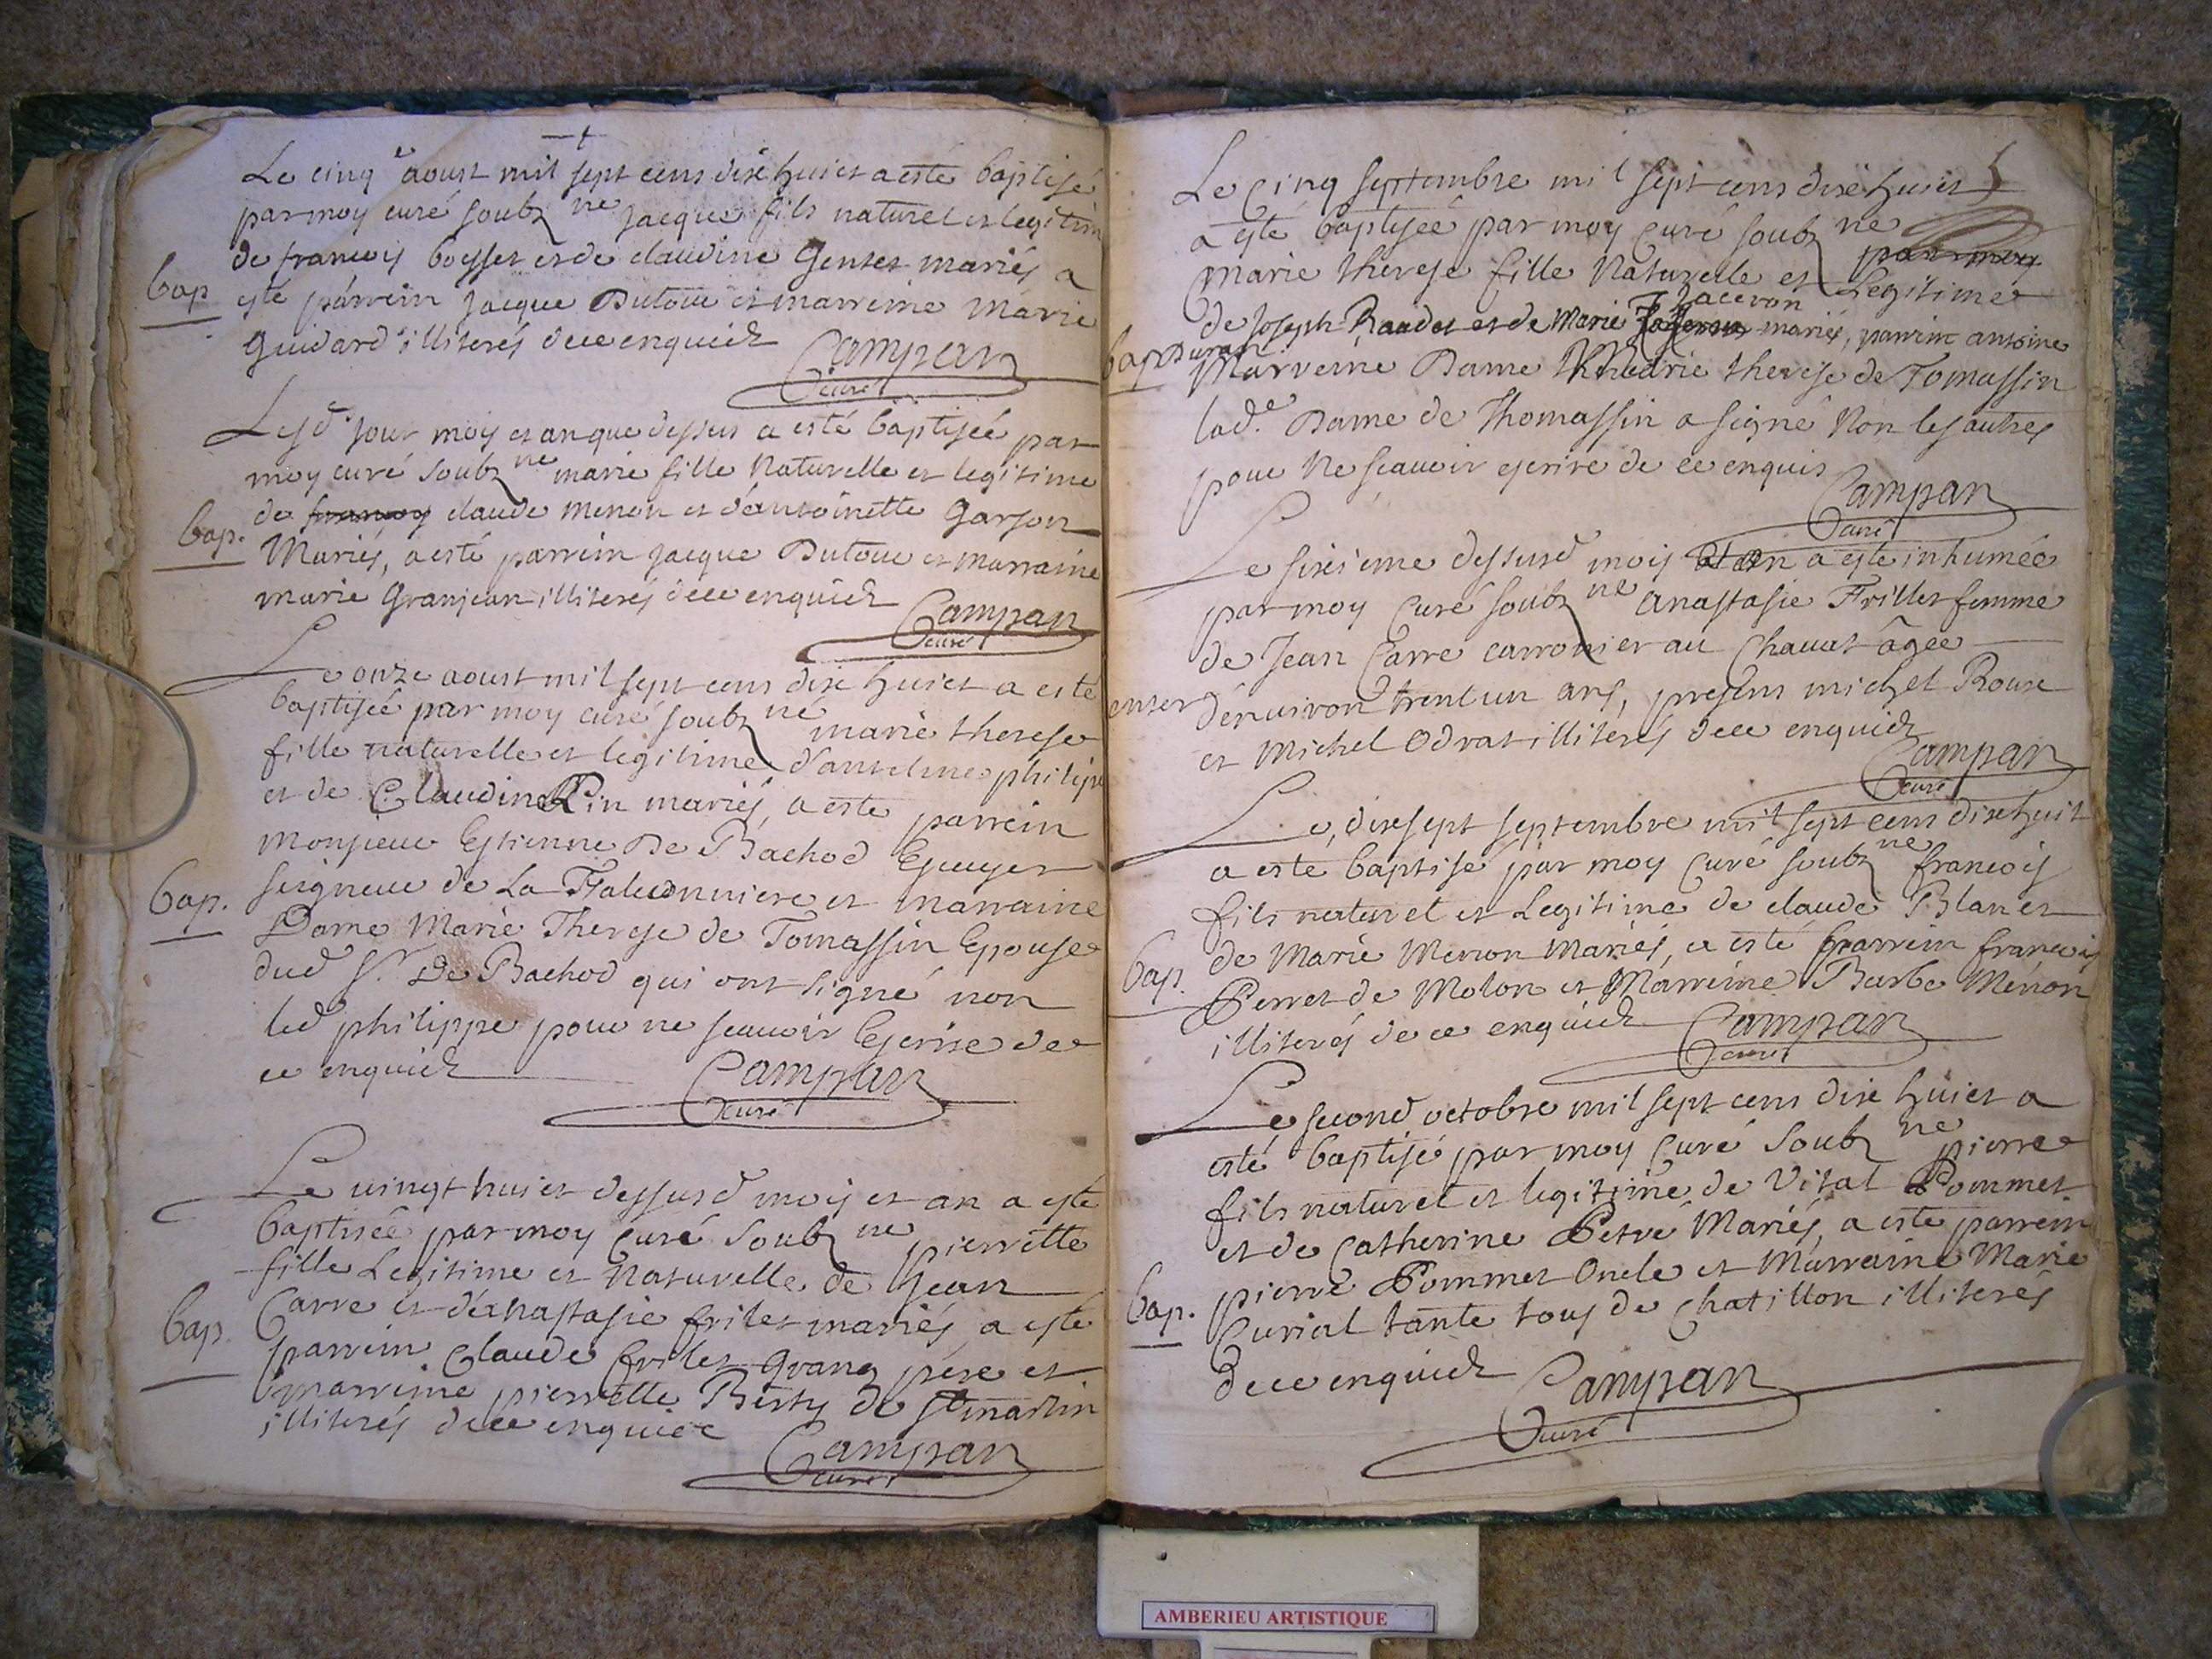 Le cinq aoust mil sept cens dix huict a esté baptisé
par moy curé soubz ne jacque fils naturel et legitim
de francois boysset et de claudine Gentet mariés a
bap
esté parrein jacque Dutour et marreine Marie
Guidard illiterés de ce enquicz
Campan
curé
Lesd jour moys et an que dessus a esté baptisée par
moy curé soubz ne marie fille Naturelle et legitime
de francoy claude menon et d'antoinette Garson
bap.
Mariés, a esté parrein jacque Dutour et marraine
marie Granjean illiterés de ce enquicz
Campan
curé
Le onze aoust mil sept cens dix huict a esté
baptisée par moy curé soubz ne marie therese
fille naturelle et legitime d'anselme philipe
et de Claudine Pin mariés, a esté parrein
Monsieur Estienne De Bachod Escuyer
bap.
seigneur de La Faluconniere et marraine
Dame Marie Therese de Tomassin Epouse
dud Sr. De Bachod qui ont signé non
led philippe pour ne scauoir Escrire de
ce enquicz
Campan
curé
Le uingt huict dessusd moys et an a esté
baptisée par moy curé soubz ne pierrette
fille Legitime et Naturelle de Jean
Carre et d'exnastasie frilet mariés a esté
bap.
parrein Claude frilet grang père et
marreine pierrette Berty de St martin
illiterés de ce enquict
Campan
curé
5
Le cinq septembre mil sept cens dix huict
a esté baptisée par moy curé soubz ne par moy
Marie therese fille Naturelle et Legitime
Jaceron
de Joseph Raudet et de Marie mariés, parrein antoine
bap
Duran
Marreine Dame Marie therese de Tomassin
lad.e Dame de Thomassin a signé Non les autres
pour Ne scauoir escrire de ce enquis
Campan
curé
Le sixieme dessusd moys et an a esté inhumée
par moy curé soubz ne Anastasie Frillet femme
de Jean Carre carronier au Chauat âgée
enter
d'enuiron trent un ans, presens michel Roux
et Michel Odrat illiterés de ce enquicz
Campan
curé
Le, dixsept septembre mil sept cens dix huit
a esté baptisé par moy curé soubz ne francois
fils naturel et Legitime de claude Blanc et
de Marie Menon Mariés, a esté parrein francois
bap.
Perret de Molon et Marreine Barbe Menon
illiterés de ce enquicz
Campan
curé
Le second octobre mil sept cens dix huict a
esté baptisé par moy curé soubz ne pierre
fils naturel et legitime de Vital Pommet
et de Catherine Petré Mariés, a esté parrein
pierre Pommet Oncle et Marraine Marie
bap.
Curial tante tous de Chatillon illiterés
de ce enquicz
Campan
curé
AMBERIEU ARTISTIQUE